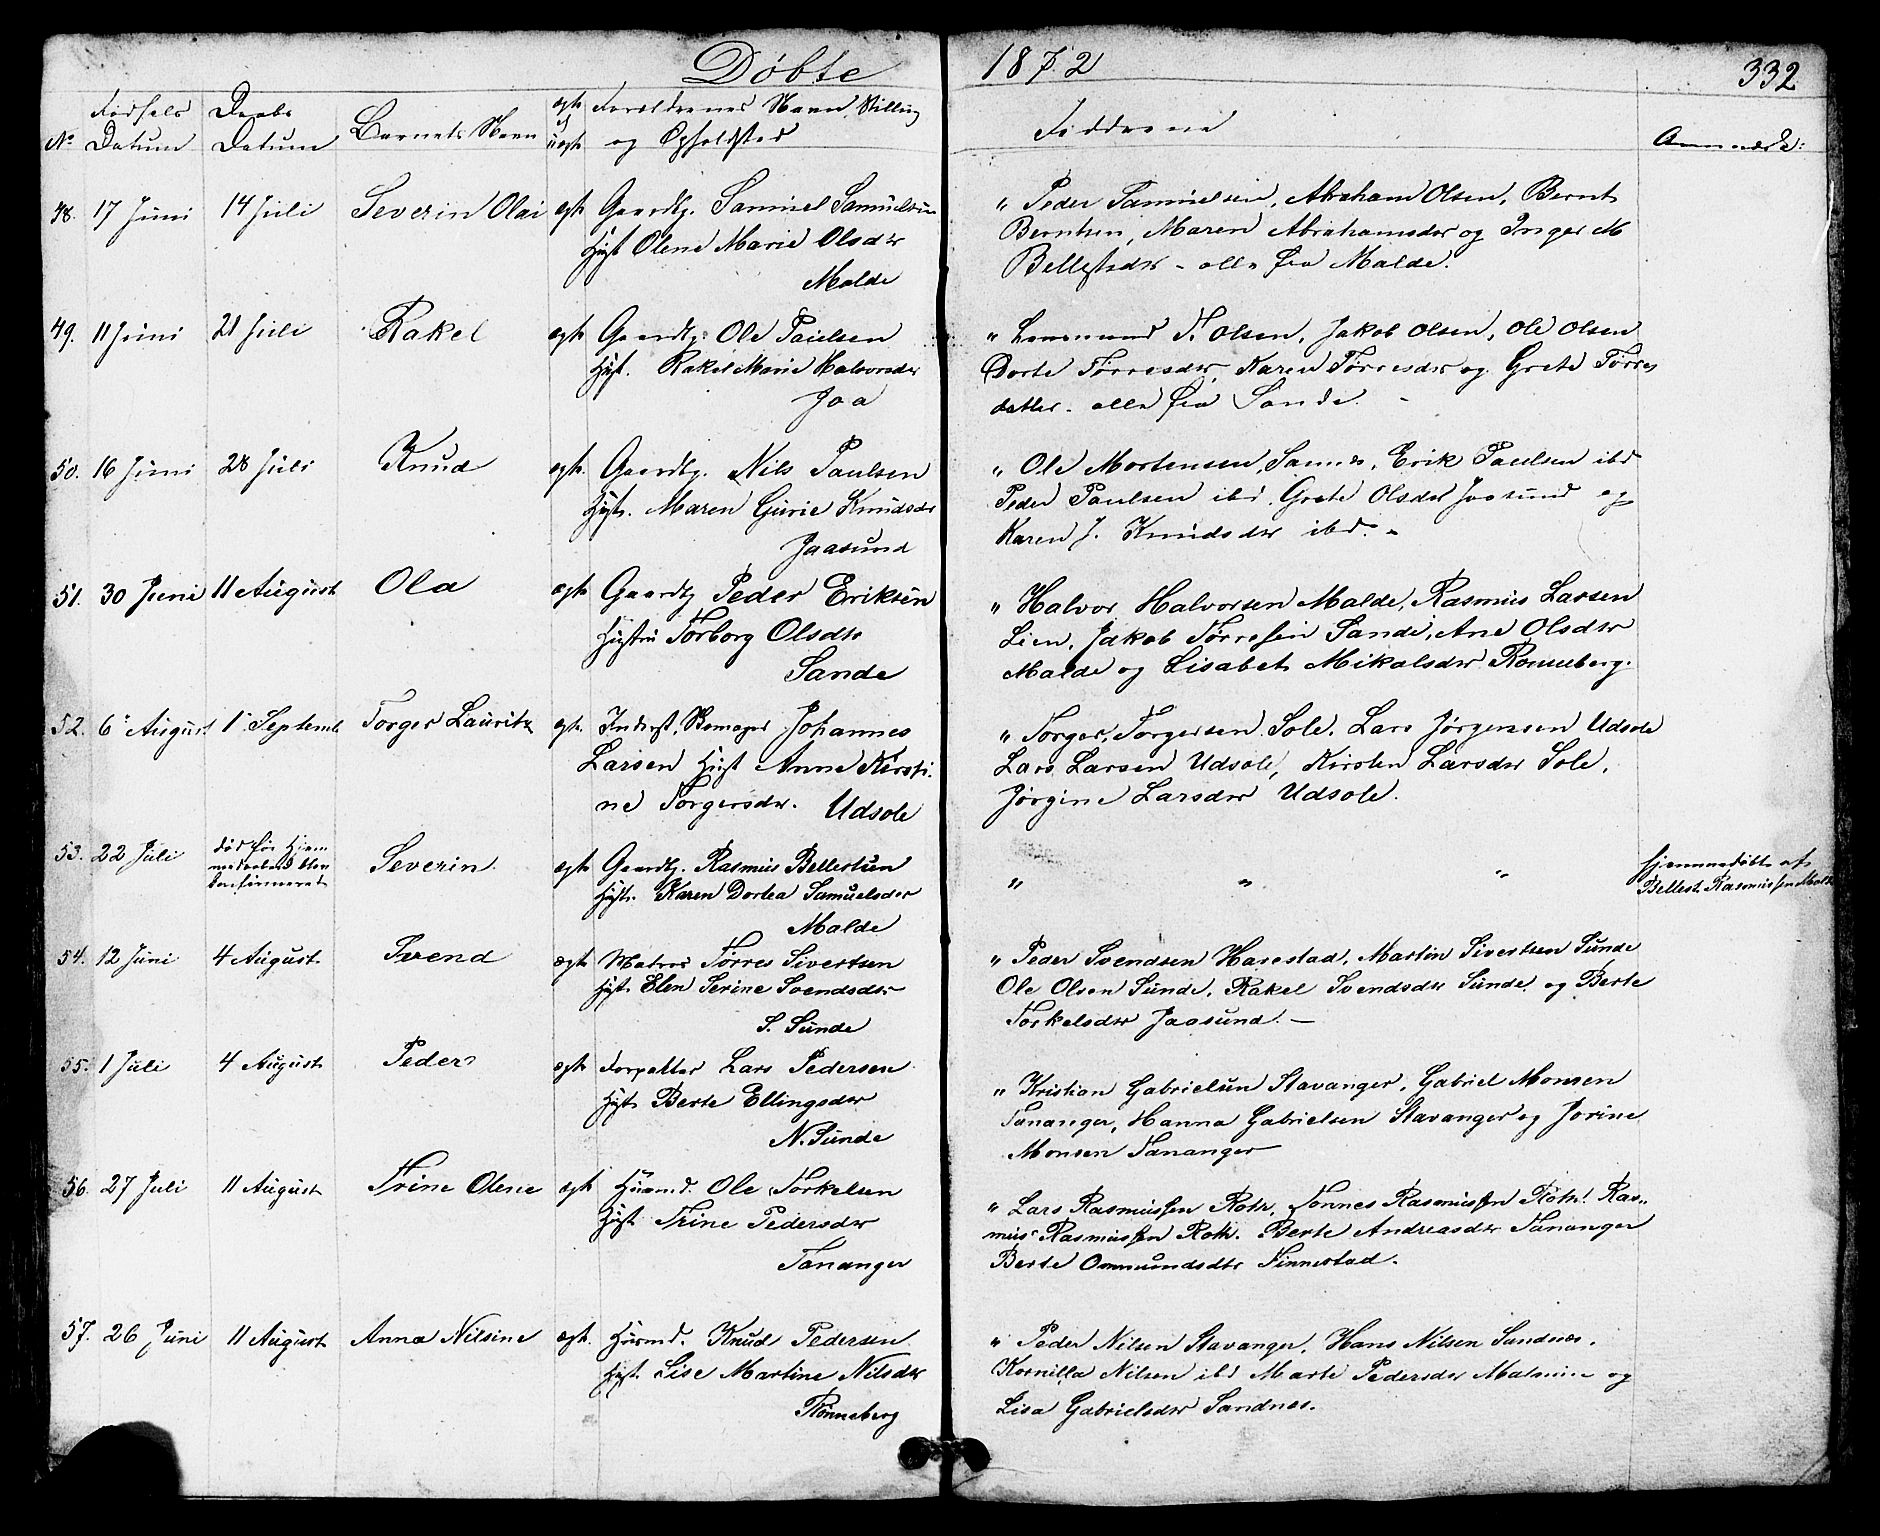 Døbte 1872 332
No Fødsels Datum Daabs Datum Barnets Navn ægte el uægte Forældrenes Navn, Stilling og Opholdsted Fadderne Anmærk:
48. 17 Juni 14 Juli Severin Olai ægt Gaardbr. Samuel Samuelsen
Hust Olene Marie Olsdtr
Malde
" Peder Samuelsen, Abraham Olsen, Bernt
Berntsen, Maren Abrahamsdtr og Inger M
Bellestdtr - alle fra Malde.
49. 11 Juni 21 Juli Rakel ægt Gaardbr. Ole Paulsen
Hust. Rakel Marie Halvorsdtr
Joa
" Lensmand T. Olsen, Jakob Olsen, Ole Olsen
Dorte Tørresdtr, Karen Tørresdtr og Grete Tørres
datter - alle fra Sande. -
50. 16 Juni 28 Juli Knud ægt. Gaardbr. Nils Paulsen
Hust. Maren Gurie Knudsdtr
Jaasund
" Ole Mortensen, Erik Paulsen ibd
Peder Paulsen ibd. Grete Olsdtr Jaasund og
Karen J. Knudsdtr ibd. -
51. 30 Juni 11 August Ola ægt Gaardbr Peder Eriksen
Hustru Torborg Olsdtr
Sande
" Halvor Halvorsen Malde, Rasmus Larsen
Lien, Jakob Tørresen Sande, Ane Olsdtr
Malde og Lisabet Mikalsdtr Rønneberg.
52. 6 August 1 Septemb Torger Lauritz ægt. Inderst, Skomager Johannes
Larsen Hust Anne Kirsti-
ne Torgersdtr. Udsole
" Torger Torgersen Sole, Lars Jørgensen Udsole
Lars Larsen Udsole, Kirsten Larsdtr Sole,
Jørgine Larsdtr Udsole.
53. 22 Juli død før Hjem
medaaben blev
konfirmeret Severin. ægt Gaardbr. Rasmus Bellestsen
Hust. Karen Dortea Samuelsdtr
Malde
" " "
hjemmedøbt af
Bellest Rasmussen Malde
54. 12 Juni 4 August Svend ægt Matros Tørres Sivertsen
Hust. Elen Serine Svendsdtr
S. Sunde
" Peder Svendsen Harestad, Martin Sivertsen Sunde
Ole Olsen Sunde, Rakel Svendsdtr Sunde og Berte
Torkelsdtr Jaasund. -
55. 1 Juli 4 August Peder ægt Forpakter Lars Pedersen
Hust Berte Ellingsdtr
N. Sunde
" Kristian Gabrielsen Stavanger, Gabriel Monsen
Tananger, Hanna Gabrielsen Stavanger og Jorine
Monsen Tananger
56. 27 Juli 11 August Trine Olene ægt Husmd. Ole Torkelsen
Hust Trine Pedersdtr
Tananger
" Lars Rasmussen Roth, Tønnes Rasmussen Roth! Ras-
mus Rasmussen Roth. Berte Andreasdtr Tananger
Berte Ommundsdtr Finnestad.
57. 26 Juni 11 August Anna Nilsine ægt. Husmd. Knud Pedersen
Hust. Lise Martine Nilsdtr
Rønneberg
" Peder Nilsen Stavanger, Hans Nilsen Sandnes.
Kornilla Nilsen ibd Marte Pedersdtr og
Lisa Gabrielsdtr Sandnes.